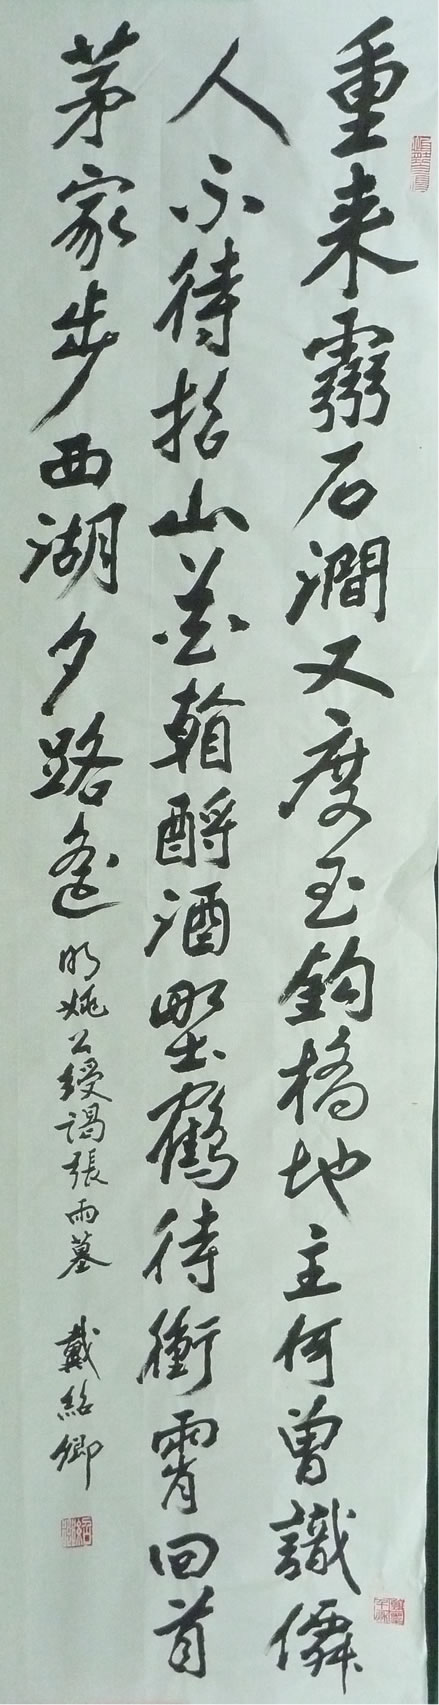 重来靈石澗又度玉鈎橋地主何曾識僊
人不待招山花翰酹酒野鶴待衝霄回首
茅家步西湖夕路遙 明姚公綬謁張雨墓 戴紹卿